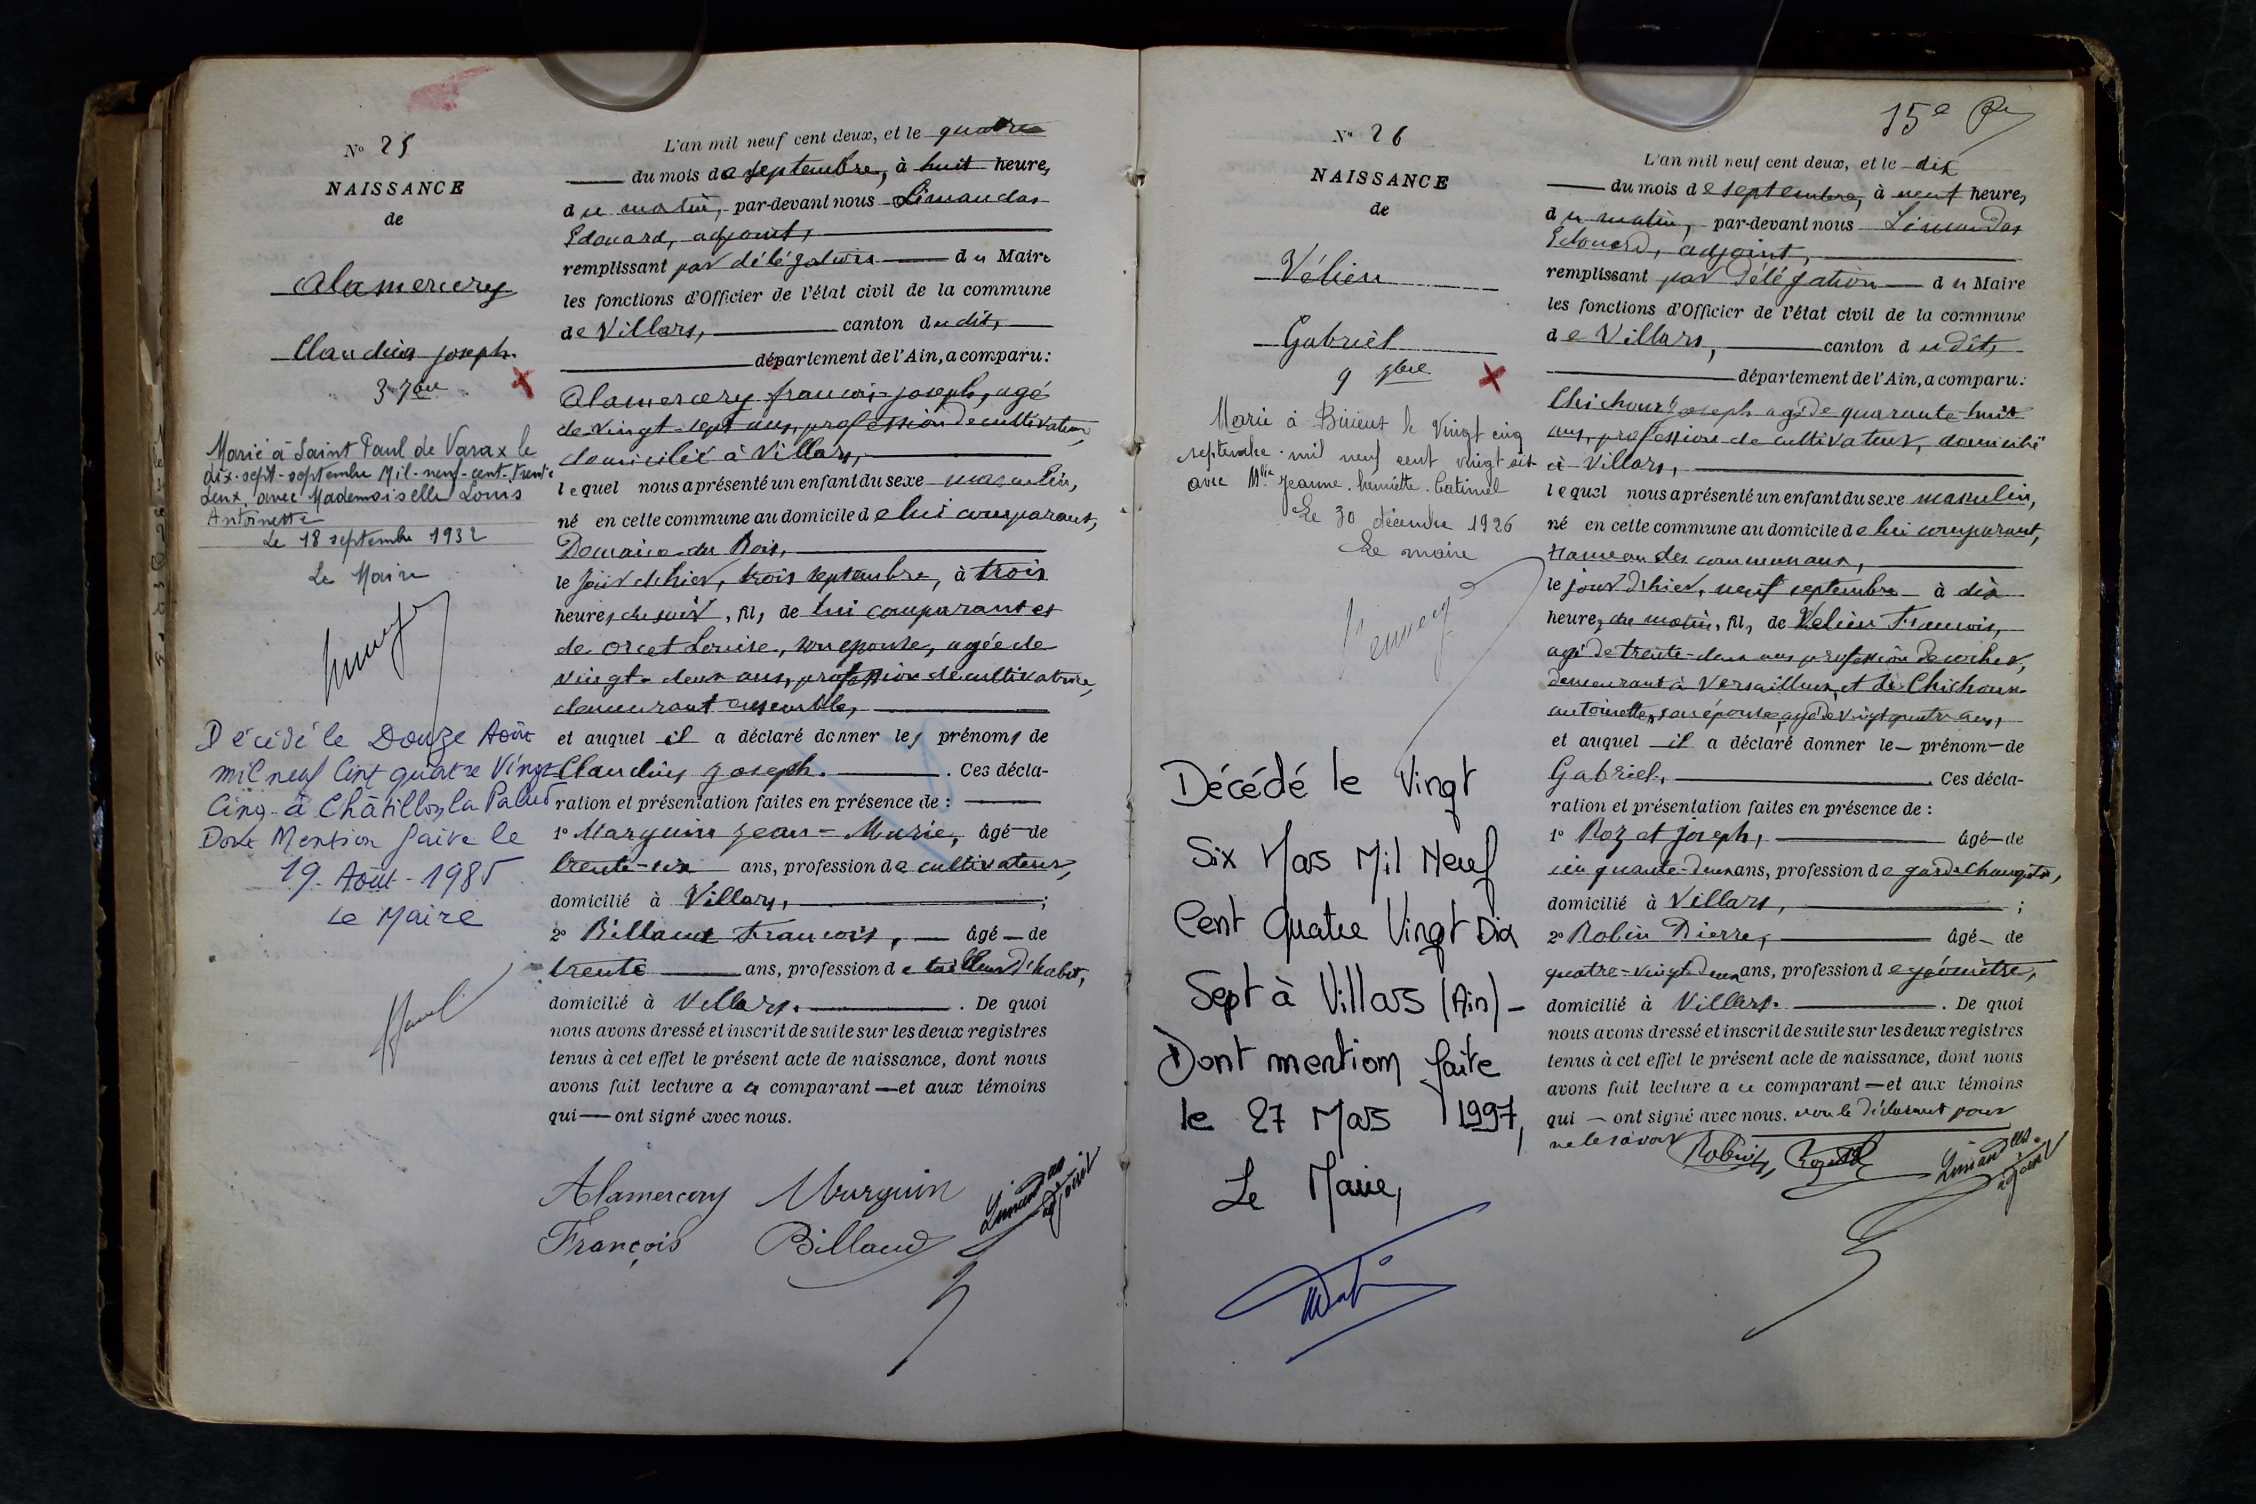 N° 25
NAISSANCE
de
Alamercery
Claudius Joseph.
3 7bre
Marié à Saint Paul de Varax le
dix-sept-septembre Mil-neuf-cent-trente
deux, avec Mademoiselle Louis
Antoinette
Le 18 septembre 1932
Le Maire
Décédé le Douze Août
mil neuf Cent quatre Vingt
Cinq à Châtillon la Palud
Dont Mention faite le
19. Août - 1985
Le Maire
L'an mil neuf cent deux, et le quatre
du mois de septembre, à huit heures
du matin, par-devant nous Limandas
Edouard, adjoint,
remplissant par délégation du Maire
les fonctions d'Officier de l'état civil de la commune
de Villars, canton dudit,
département de l'Ain, a comparu :
Alamercery françois-joseph, agé
de vingt-sept ans, profession de cultivateur,
domicilié à Villars,
lequel nous a présenté un enfant du sexe masculin,
né en cette commune au domicile de lui comparant,
Domaine du Bois,
le jour d'hier, trois septembre, à trois
heures du soir, fils de lui comparant et
de Orcet Louise, son épouse, agée de
vingt-deux ans, profession de cultivatrice,
demeurant ensemble,
et auquel il a déclaré donner les prénoms de
Claudius Joseph. . Ces décla-
ration et présentation faites en présence de :
1° Marguin Jean-Marie, âgé de
trente-six ans, profession de cultivateur,
domicilié à Villars, ;
2° Billaud François, âgé de
trente ans, profession de tailleur d'habit,
domicilié à Villars. . De quoi
nous avons dressé et inscrit de suite sur les deux registres
tenus à cet effet le présent acte de naissance, dont nous
avons fait lecture au comparant et aux témoins
qui ont signé avec nous.
Alamercery Marguin Limandas
François Billaud adjoint
15e
N° 26
NAISSANCE
de
Vélien
Gabriel
9 7bre
Marié à Birieux le vingt cinq
septembre mil neuf cent vingt six
avec Mlle Jeanne henriette Catimel
Le 30 décembre 1926
Le maire
Décédé le Vingt
Six Mars Mil Neuf
Cent Quatre Vingt Dix
Sept à Villars (Ain) -
Dont mention faite
le 27 Mars 1997,
Le Maire,
L'an mil neuf cent deux, et le dix
du mois de septembre, à neuf heures
du matin, par-devant nous Limandas
Edouard, adjoint,
remplissant par délégation du Maire
les fonctions d'Officier de l'état civil de la commune
de Villars, canton dudit,
département de l'Ain, a comparu :
Chichoux Joseph agé de quarante-huit
ans, profession de cultivateur, domicilié
à Villars,
lequel nous a présenté un enfant du sexe masculin,
né en cette commune au domicile de lui comparant,
hameau des communaux,
le jour d'hier, neuf septembre à dix
heures du matin, fils de Velien Francois,
agé de trente-deux ans profession de cocher,
demeurant à Versailleux, et de Chichoux
antoinette, son épouse, agé de vingt quatre ans,
et auquel il a déclaré donner le prénom de
Gabriel, . Ces décla-
ration et présentation faites en présence de :
1° Rozet Joseph, âgé de
cinquante-deux ans, profession de garde champêtre,
domicilié à Villars, ;
2° Robin Pierre, âgé de
quatre-vingt-deux ans, profession de géomètre,
domicilié à Villars. . De quoi
nous avons dressé et inscrit de suite sur les deux registres
tenus à cet effet le présent acte de naissance, dont nous
avons fait lecture au comparant et aux témoins
qui ont signé avec nous. non le déclarant pour
ne le savoir Robin Rozet Limandas
adjoint